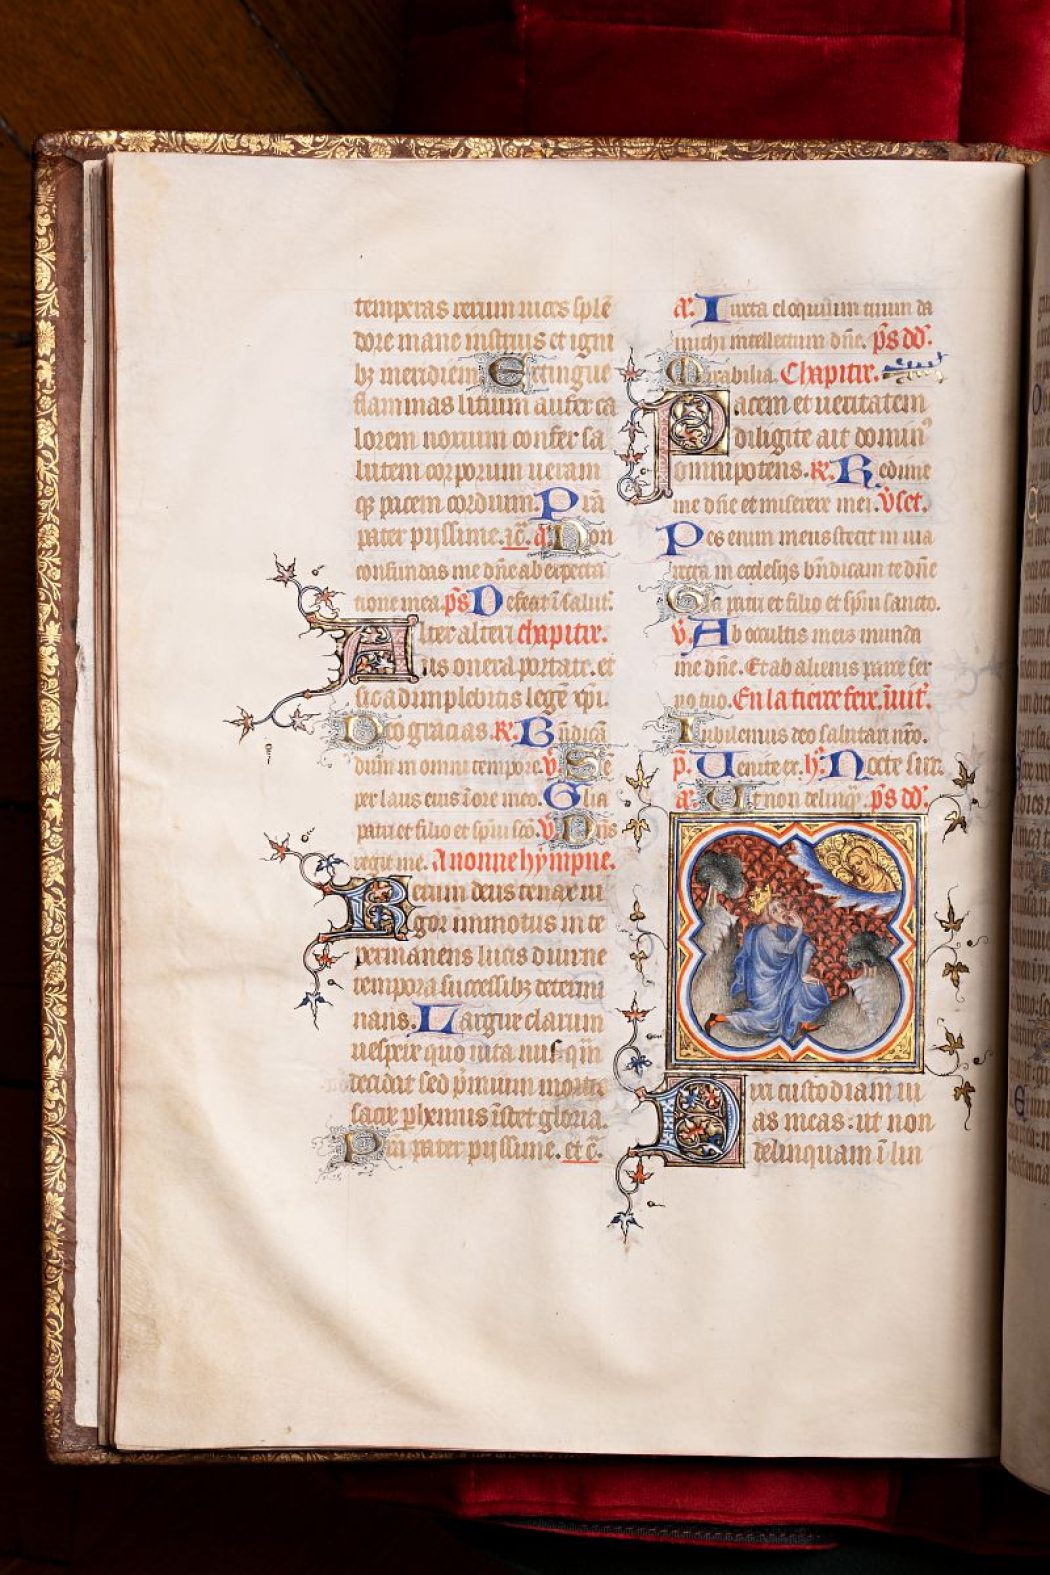 temperas rerum uices splē
dore mane instruis et igni
bȝ meridiem Extingue
flammas litium aufer ca
lorem noxium confer sa
lutem corporum ueram
qȝ pacem cordium. Prā
pater pijssime. ⁊c̄. a̓. Non
confundas me dn̄e ab expecta
tione mea. p̄s Defecit ī salut̾.
Alter alteri chapitre.
ius onera portate. et
sic adimplebitis legē xp̄i.
Deo gracias. R̾. Bn̄dicā
dn̄m in omni tempore. v̾ Sē
per laus eius ī ore meo. Glia
patri et filio et sp̄ui sc̄o. v̾ Dn̄s
regit me. A nonne hympne.
Rerum deus tenax ui
gor immotus in te
permanens lucis diurne
tempora successibȝ determi
nans. Largire clarum
uespere quo uita nusq̄m
decidat sed p̄mium mortis
sacre ꝑhennis īstet gloria.
Prā pater pijssime. et c̄.
a̓. Iuxta eloquium tuum da
michi intellectum dn̄e. p̄s dd̾.
Mirabilia. Chapitre.
Pacem et ueritatem
diligite ait domin⁹
omnipotens. R̾. Redime
me dn̄e et miserere mei. v̾set.
Pes enim meus stetit in uia
recta in ecclesijs bn̄dicam te dn̄e
Gla patri et filio et sp̄ui sancto.
v̾. Ab occultis meis munda
me dn̄e. Et ab alienis parce ser
uo tuo. En la tierce fere. īuit̾.
Iubilemus deo salutari nr̄o.
p̄. Uenite ex. h̾: Nocte sur.
a̓. Ut non delinq̄. p̄s dd̾.
Dixi custodiam ui
as meas: ut non
delinquam ī lin